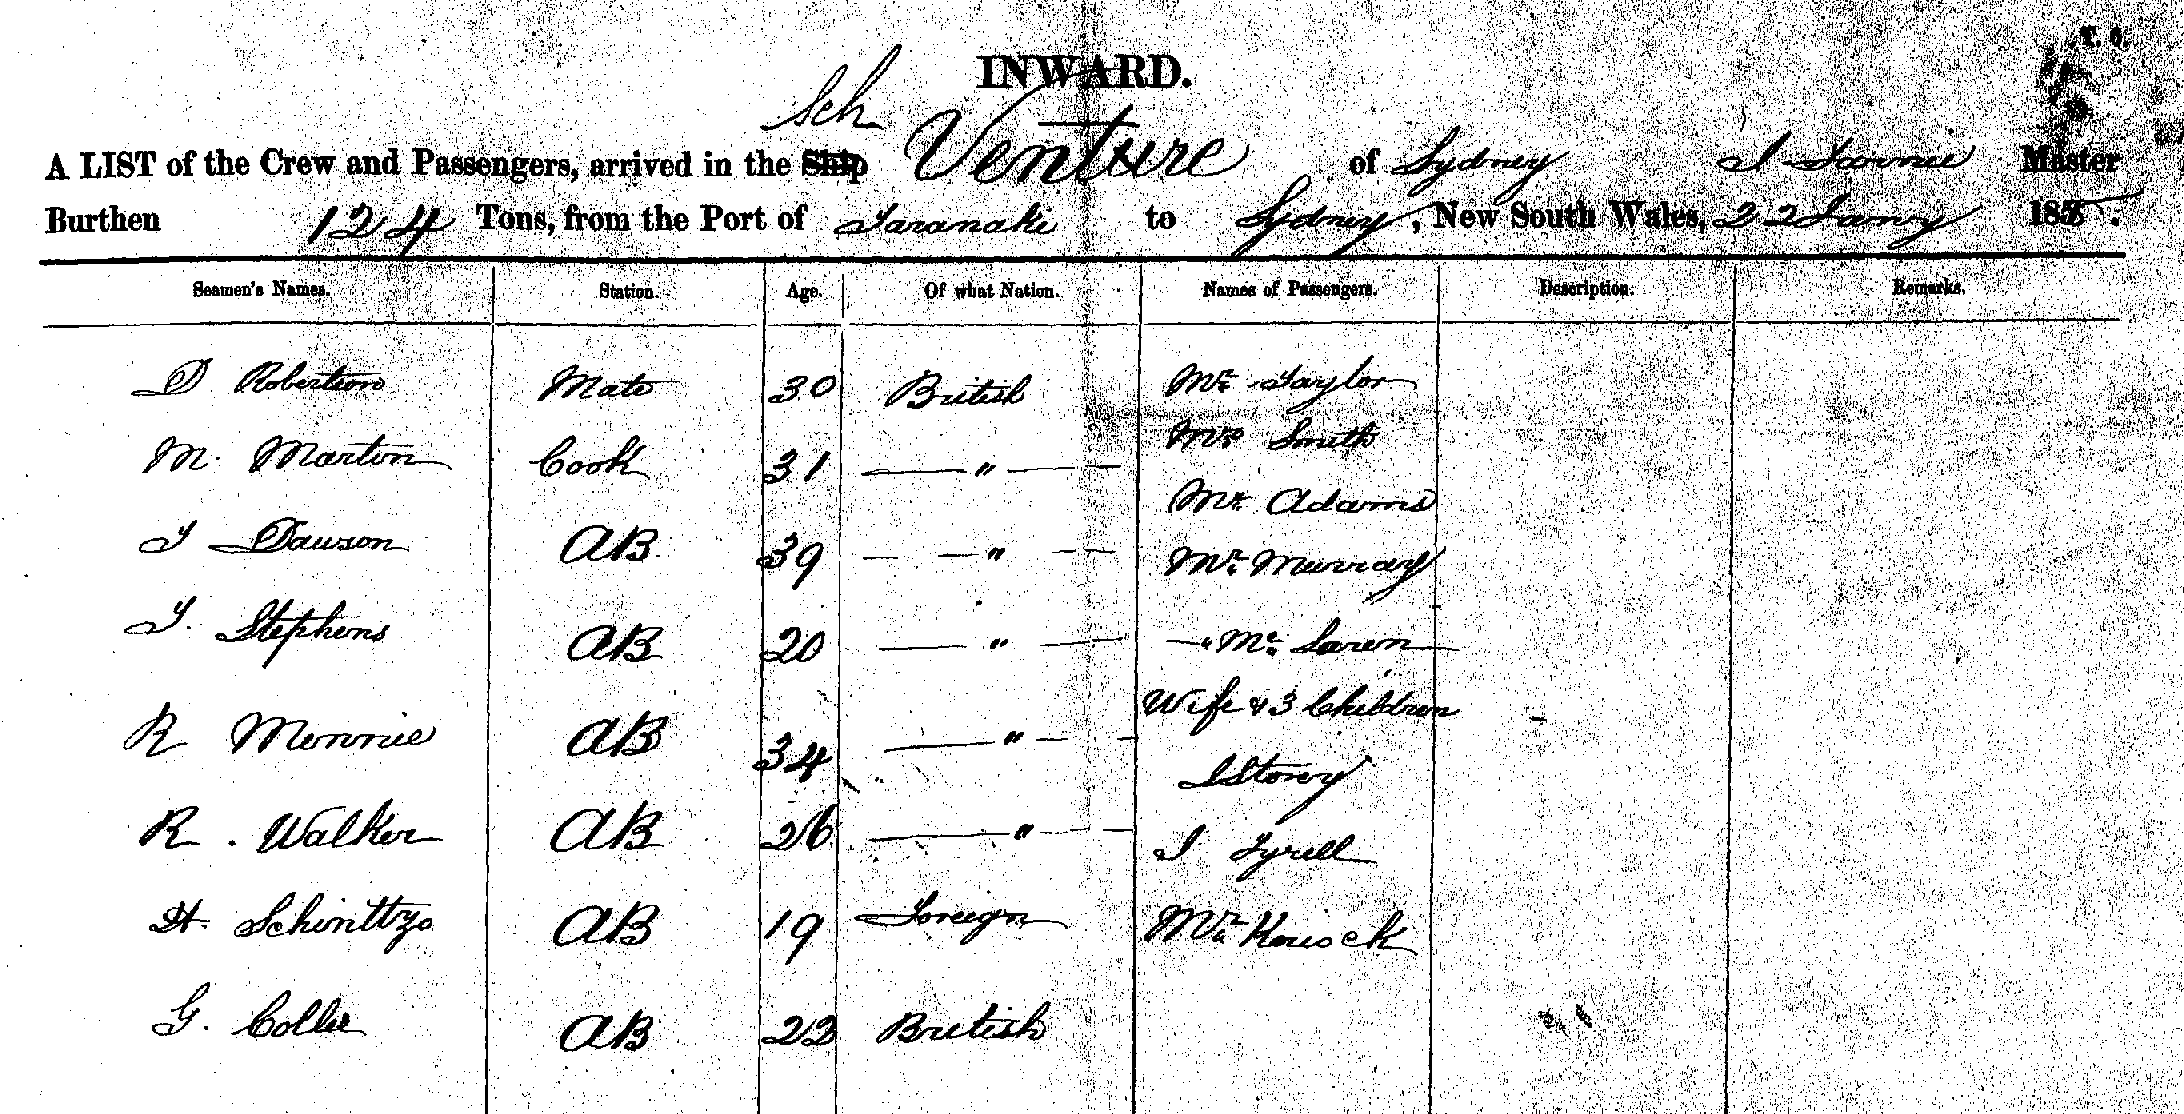 INWARD.
Sch
A LIST of the Crew and Passengers, arrived in the Ship Venture of Sydney Master
Burthen 124 Tons, from the Port of Taranaki to Sydney, New South Wales, 22 Jany 185
Seamen's Names. Station. Age. Of what Nation. Names of Passengers. Description. Remarks.
D Robertson Mate 30 British Mr. Taylor
Mrs Smith
M. Marton Cook 31 — " —
Mr Adams
J Dawson AB 39 — — " — Mr. Murray
J. Stephens AB 20 — " — — " Mc Laren
Wife & 3 Children
R Mennie AB 34 — " —
J Storey
R. Walker AB 26 — " —
J Tyrell
H. AB 19 Foreign Mr.
G. Collie AB 23 British